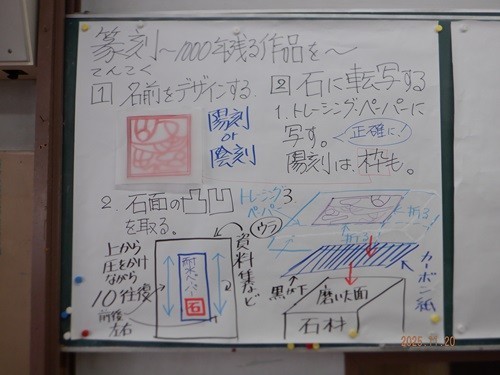 篆刻～1000年残る作品を～
てんこく
1 名前をデザインする
陽刻
or
陰刻
2 石に転写する
1.トレーシングペーパーに
写す。
正確に!
陽刻は、枠も。
2. 石面の凸凹
を取る。
上から
圧をかけ
ながら
10往復
前後
左右
耐水ペーパー
石
ウラ
資料集など
3
トレーシング
ペーパー
折る!
カーボン紙
黒が下
磨いた面
石材
2025.11.20